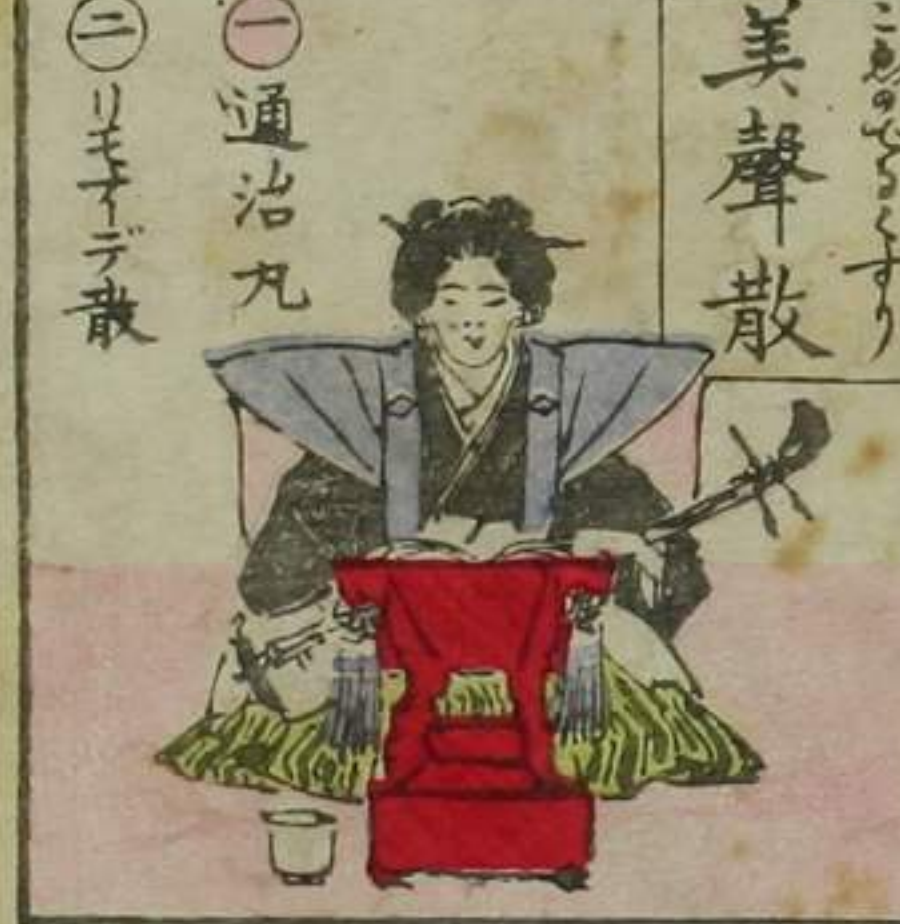 こゑのでるくすり
美聲散
㊀通治丸
㊁リモナーデ散